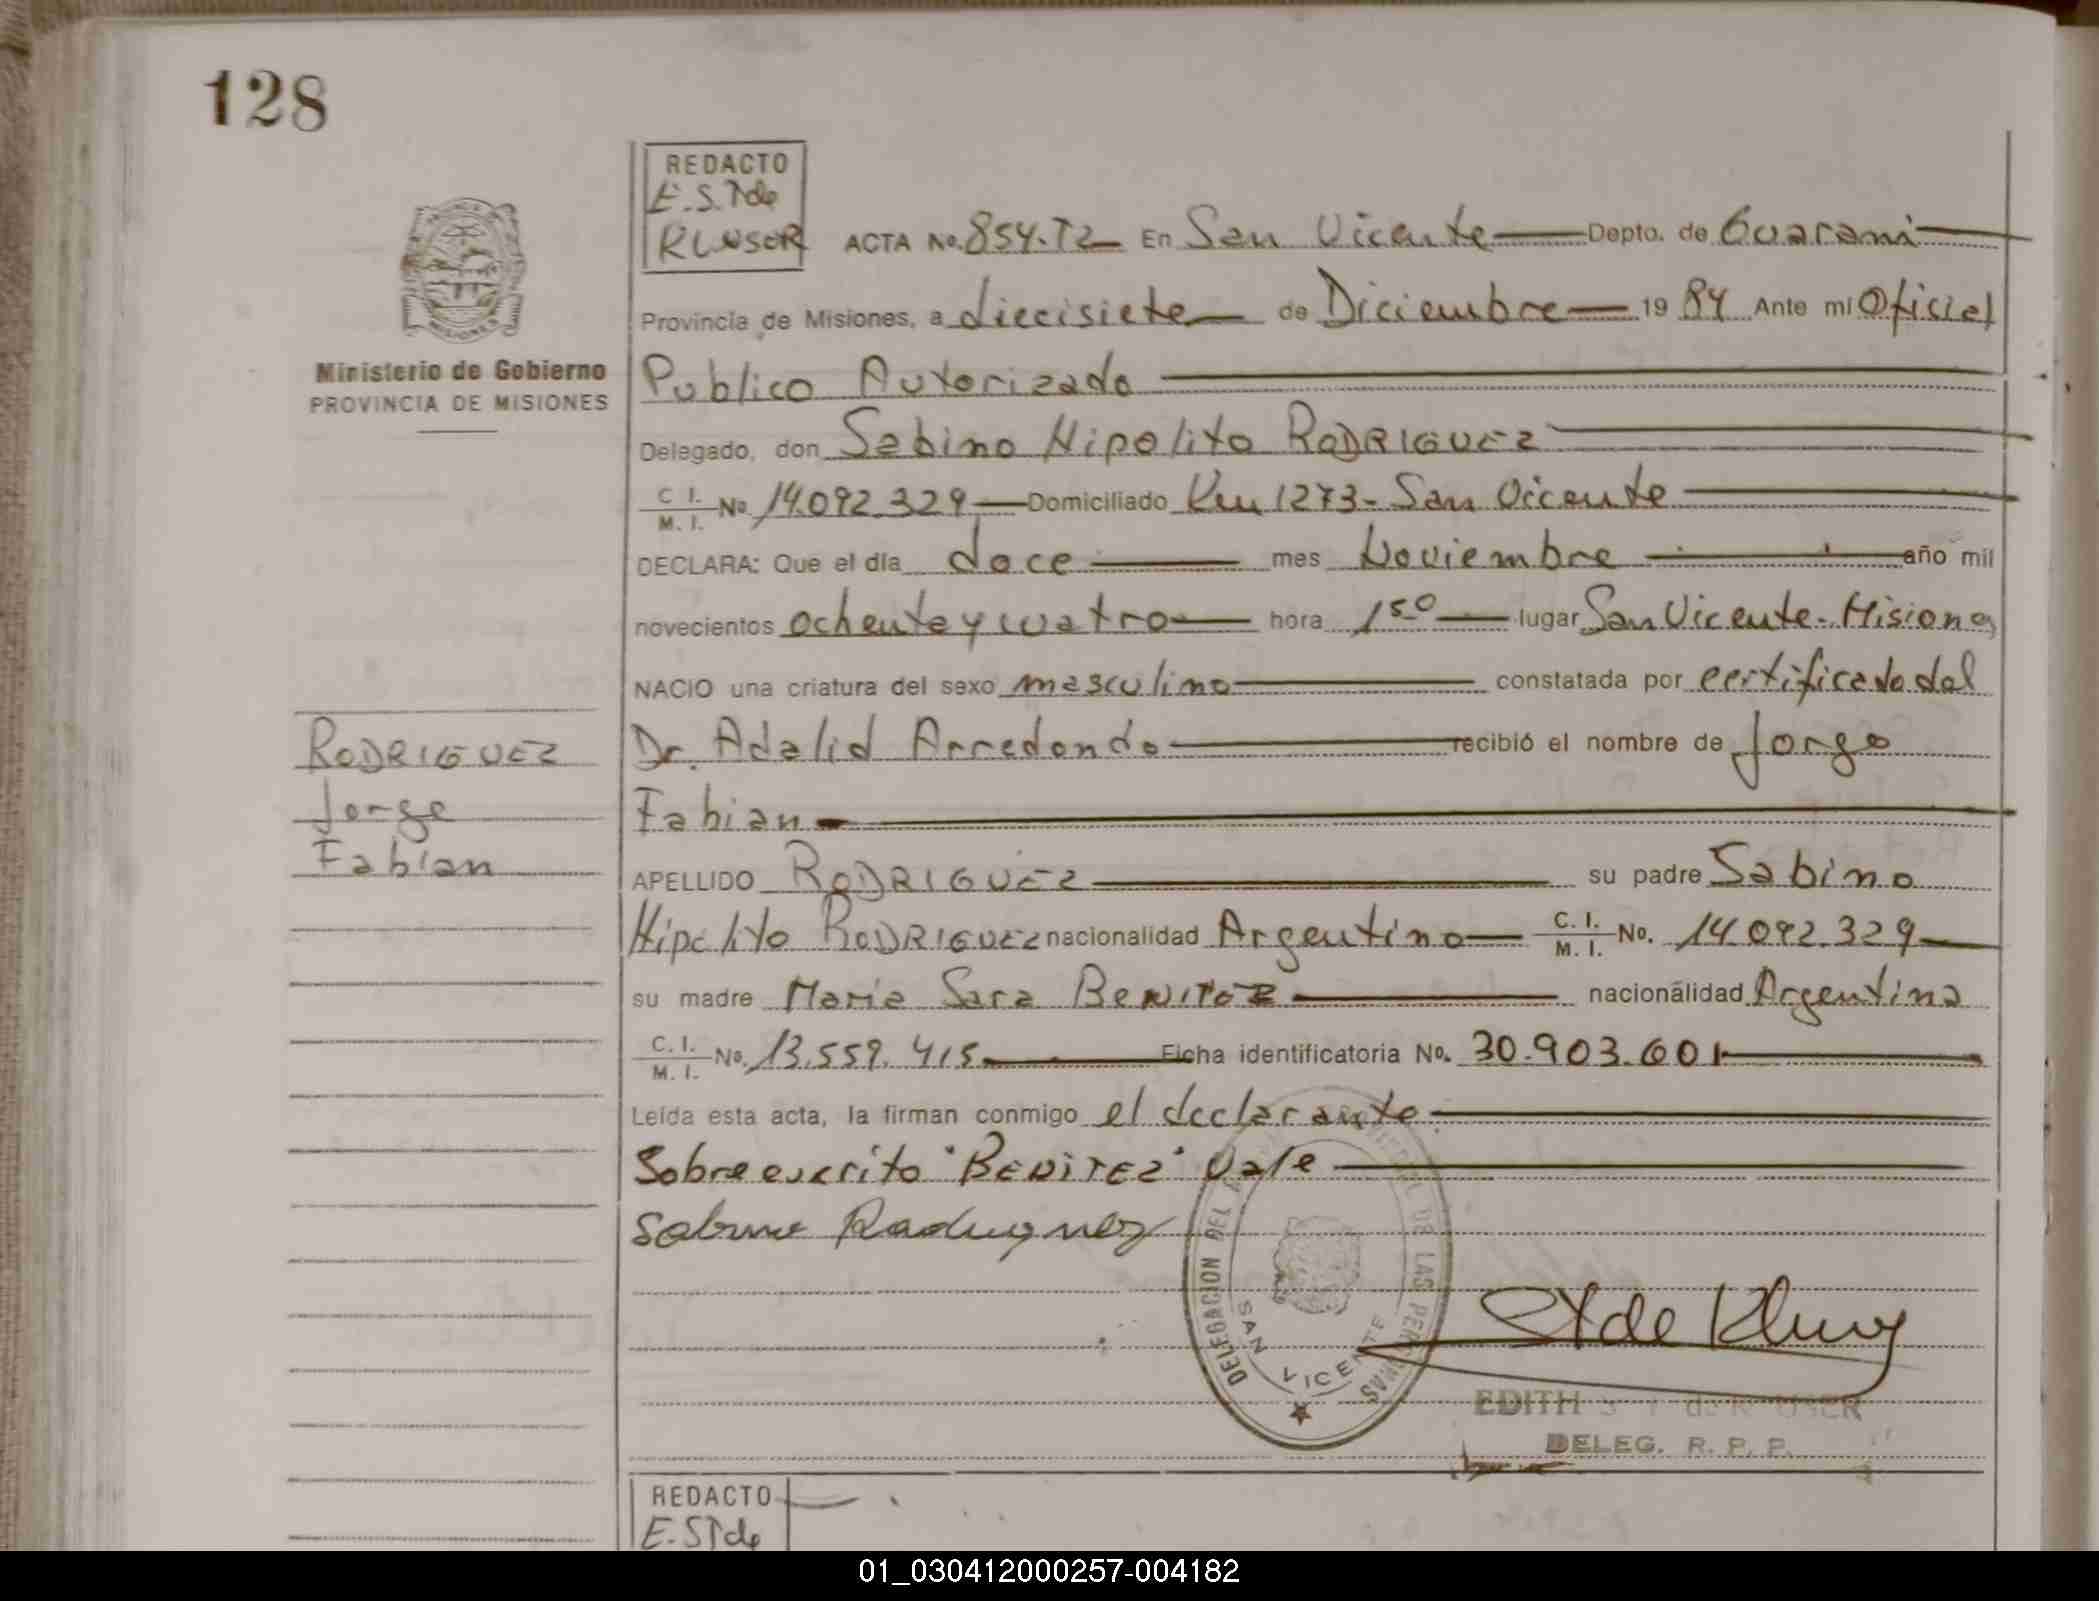 128
REDACTO
E.S.T de
KLUSER
ACTA No. 854.T2 En San Vicente Depto. de Guarani
Ministerio de Gobierno
PROVINCIA DE MISIONES
Provincia de Misiones, a diecisiete de Diciembre 19 84 Ante mi Oficial
Publico Autorizado
Delegado, don Sabino Hipolito RODRIGUEZ
C. I. M. I. No. 14.092.329 Domiciliado Km 1273 - San Vicente
DECLARA: Que el día doce mes Noviembre año mil
novecientos ochenta y cuatro hora 1 50 lugar San Vicente - Misiones
NACIO una criatura del sexo masculino constatada por certificado del
Dr. Adalid Arredondo recibió el nombre de Jorge
Fabian
RODRIGUEZ
Jorge
Fabian
APELLIDO RODRIGUEZ su padre Sabino
Hipolito RODRIGUEZ nacionalidad Argentino C. I. M. I. No. 14.092.329
su madre Maria Sara BENITEZ nacionalidad Argentina
C. I. M. I. No. 13.559.415 Ficha identificatoria No. 30.903.601
Leída esta acta, la firman conmigo el declarante
Sobreescrito "BENITEZ" Vale
Sabino Rodriguez
DELEGACION DEL DE LAS PERSONAS
SAN VICENTE
EDITH S T de KLUSER
DELEG. R. P. P.
REDACTO
E.S T de
01_030412000257-004182